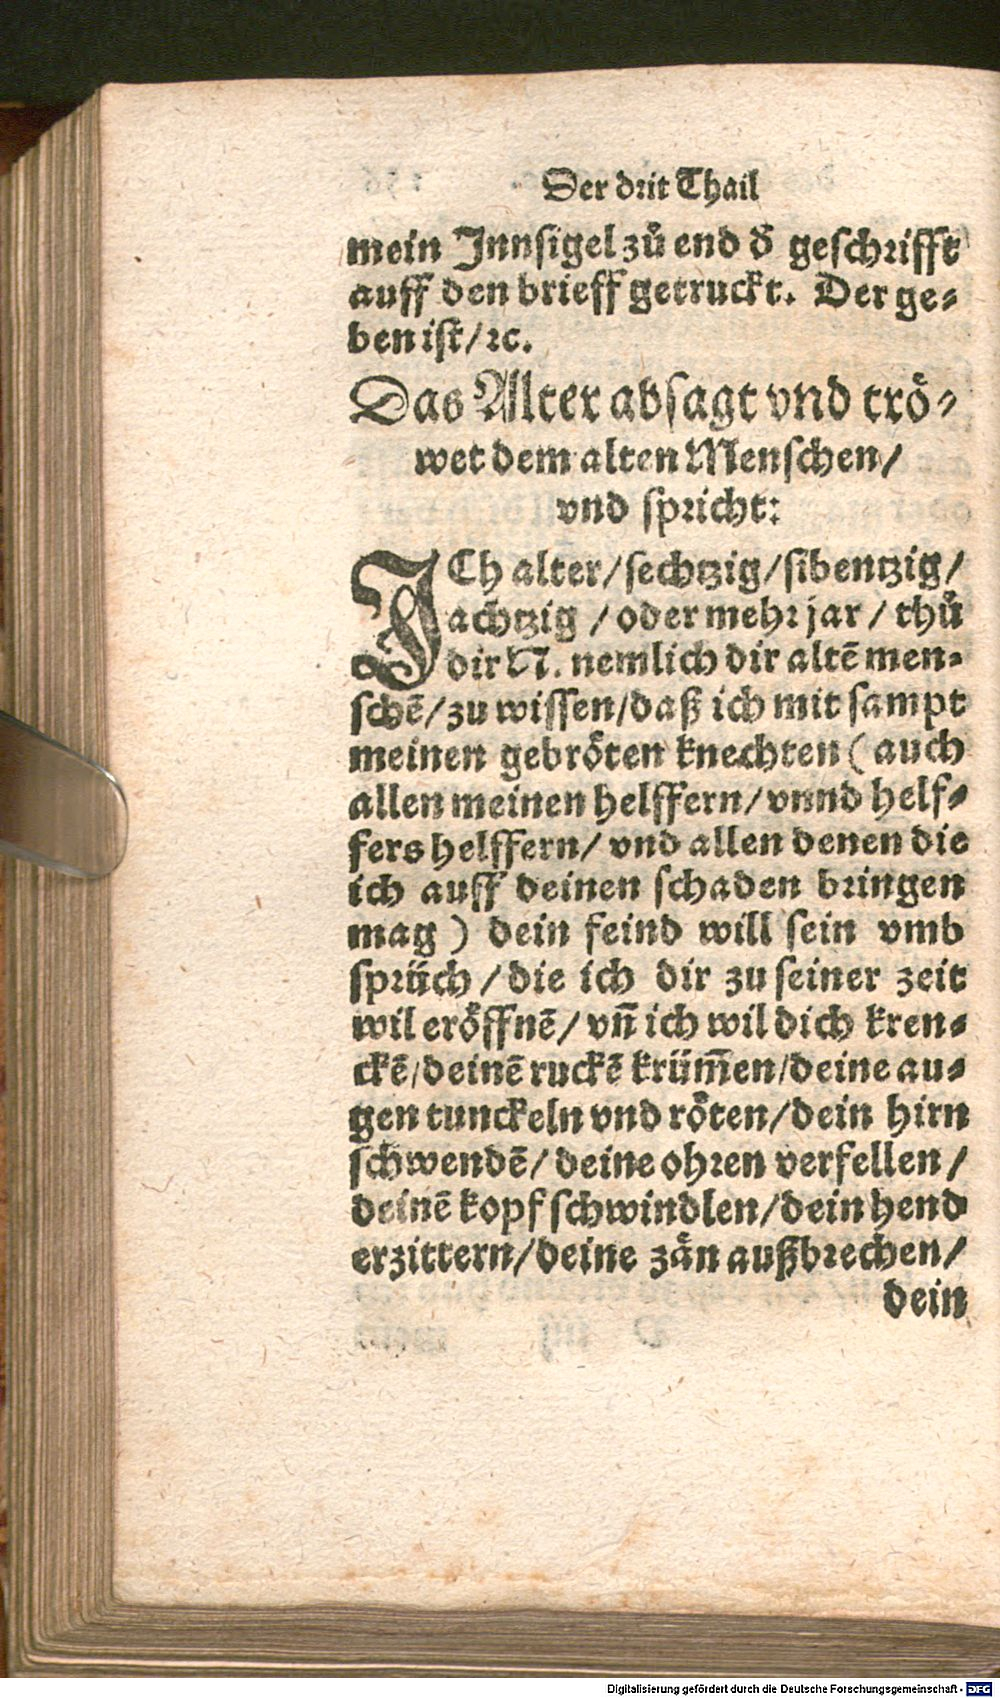 Der drit Thail
mein Innsigel zů end đ geschrifft
auff den brieff getruckt. Der ge-
ben ist/ ꝛc.
Das Alter absagt vnd trö-
wet dem alten Menschen/
vnd spricht:
ICh alter/ sechtzig/ sibentzig/
achtzig / oder mehr jar / thů
dir N. nemlich dir altē men-
schē/ zu wissen/ daß ich mit sampt
meinen gebröten knechten ( auch
allen meinen helffern/ vnnd helf-
fers helffern/ vnd allen denen die
ich auff deinen schaden bringen
mag ) dein feind will sein vmb
sprüch / die ich dir zu seiner zeit
wil eröffnē/ vñ ich wil dich kren-
ckē/ deinē ruckē krüm̄en/ deine au-
gen tunckeln vnd röten/ dein hirn
schwendē/ deine ohren verfellen /
deinē kopf schwindlen/ dein hend
erzittern/ deine zän außbrechen/
dein
Digitalisierung gefördert durch die Deutsche Forschungsgemeinschaft - DFG